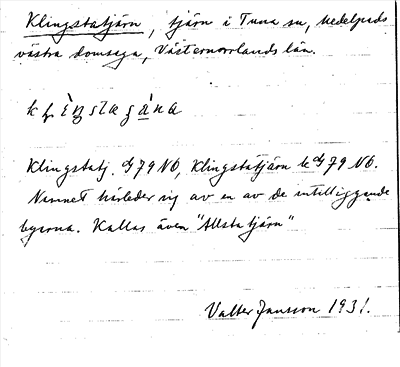 Klingstatjärn, tjärn i Tuna sn, Medelpads
västra domsaga, Västernorrlands län.
Klingstatj. G79 NO, Klingstatjärn k G79 NO.
Namnet härleder sig av en av de intilliggande
byarna. Kallas även "Allsta tjärn"
Valter Jansson 1931.